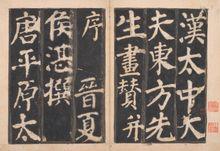 漢太中大
夫東方先
生畫賛并
序　晉夏
侯湛撰
唐平原太